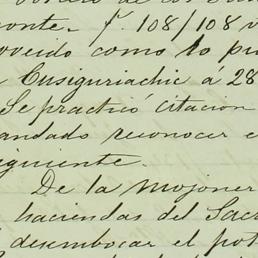 onte. f. 108/108 v
oveido como lo pi
Cusiguriachic á 28
Se practicó citacion
andado reconocer e
iguiente.
De la mojoner
haciendas del Sac
desembocar el pot